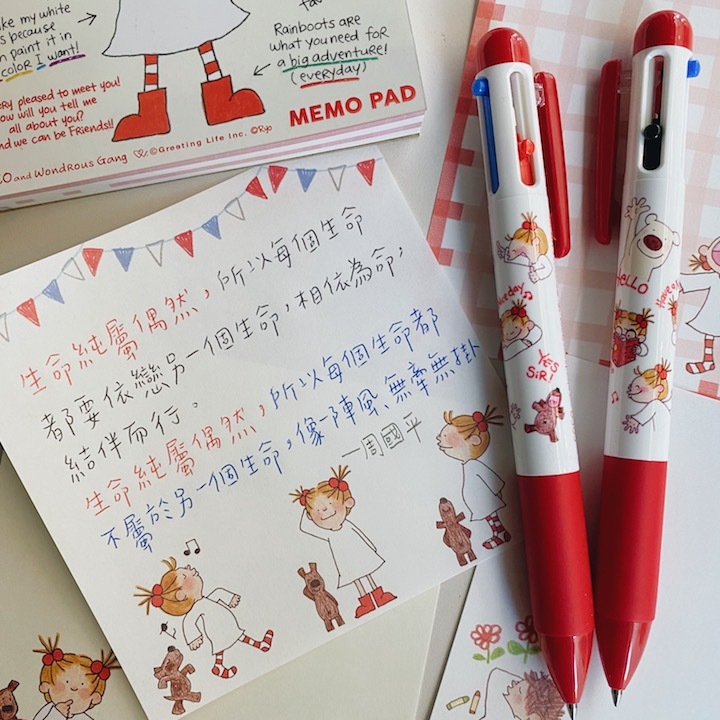 ke my white
s because
n paint it in
color I want!
ery pleased to meet you!
ow will you tell me
all about you?
nd we can be FRiends!!
CO and WONDROUS GANG ©Greeting Life Inc. ©Ryo
Rainboots are
what you need for
a big adventure!
(everyday)
MEMO PAD
生命純屬偶然，所以每個生命
都要依戀另一個生命，相依為命，
結伴而行。
生命純屬偶然，所以每個生命都
不屬於另一個生命，像一陣風、無牽無掛
—周國平
YES
SIR!
HELLO